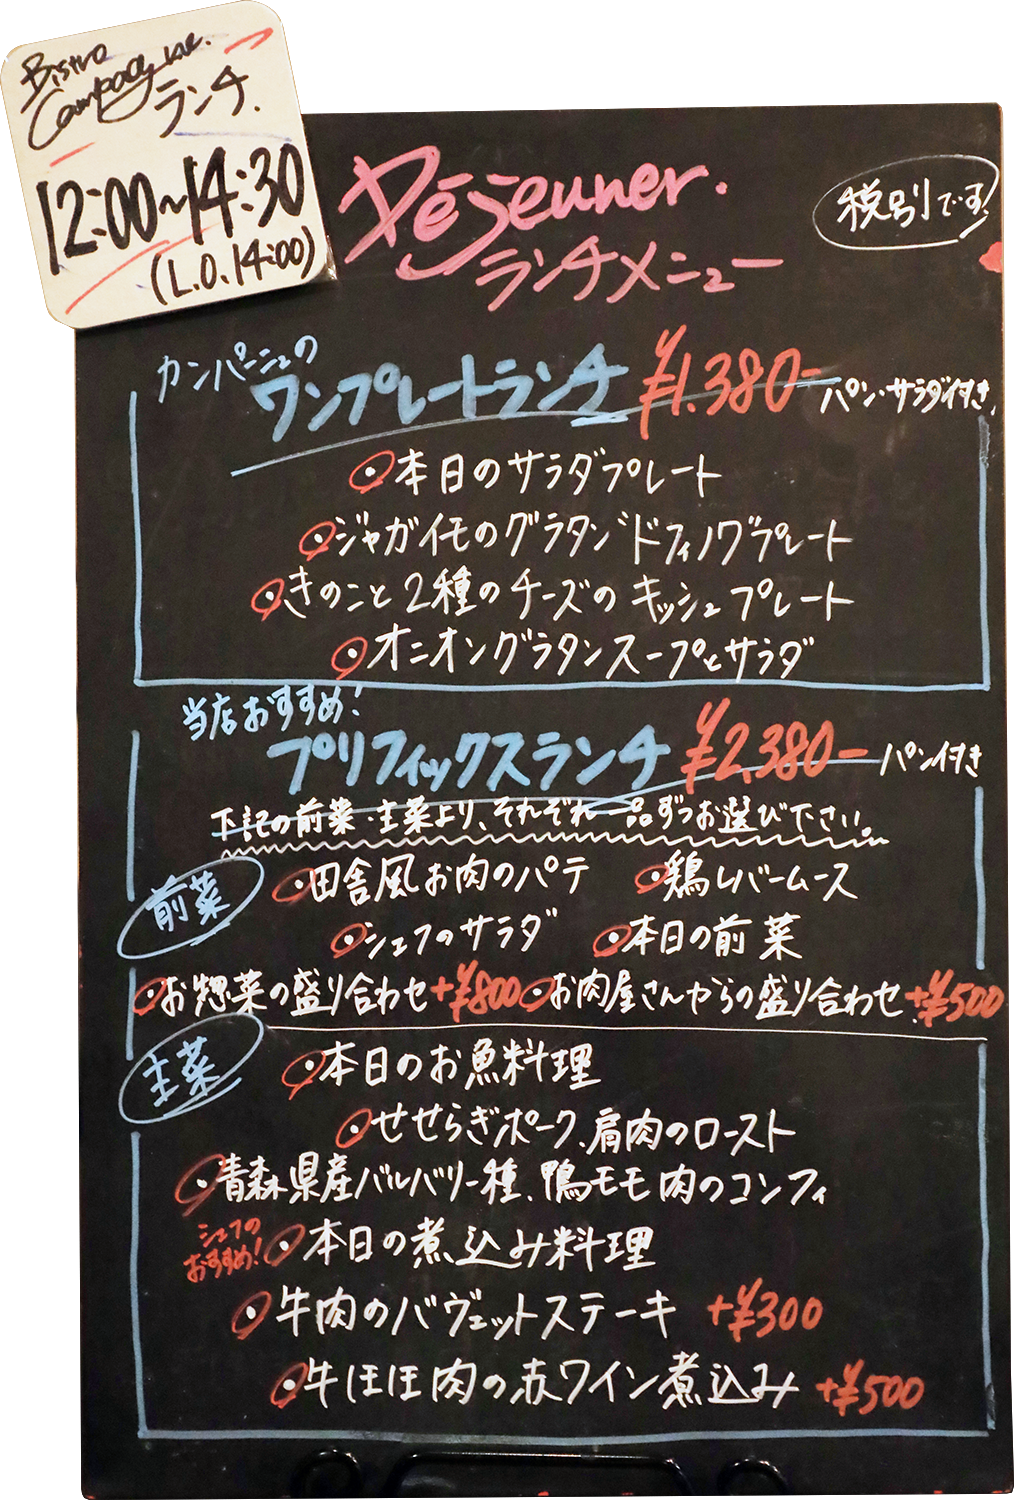 Bistro
Campagne.
ランチ.
12:00~14:30
(L.O.14:00)
Déjeuner.
ランチメニュー
税別です!
カンパーニュの
ワンプレートランチ ¥1.380-
パン・サラダ付き.
・本日のサラダプレート
・ジャガイモのグラタン゛ドフィノワ゛プレート
・きのこと2種のチーズのキッシュプレート
・オニオングラタンスープとサラダ
当店おすすめ!
プリフィックスランチ ¥2,380- パン付き
下記の前菜・主菜より、それぞれ一品ずつお選び下さい。
前菜
・田舎風お肉のパテ ・鶏レバームース
・シェフのサラダ ・本日の前菜
・お惣菜の盛り合わせ+¥800 ・お肉屋さんからの盛り合わせ+¥500
主菜
・本日のお魚料理
・せせらぎポーク、肩肉のロースト
・青森県産バルバリー種、鴨モモ肉のコンフィ
シェフの
おすすめ!
・本日の煮込み料理
・牛肉のバヴェットステーキ +¥300
・牛ほほ肉の赤ワイン煮込み +¥500